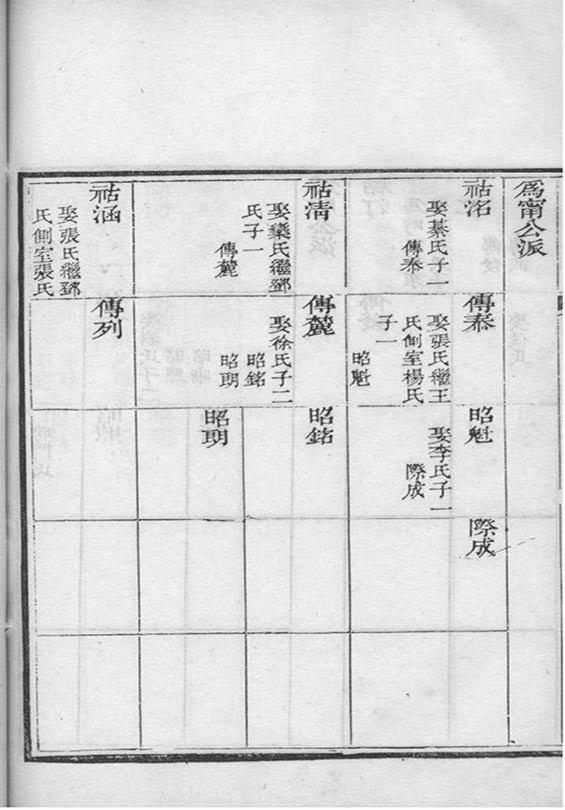 為甯公派
祜洺
娶綦氏子一
傳泰
傳泰
娶張氏繼王
氏側室楊氏
子一
昭魁
昭魁
娶李氏子一
際成
際成
祜清
娶欒氏繼鄧
氏子一
傳麓
傳麓
娶徐氏子二
昭銘
昭朗
昭銘
昭朗
祜涵
娶張氏繼鄧
氏側室張氏
傳列